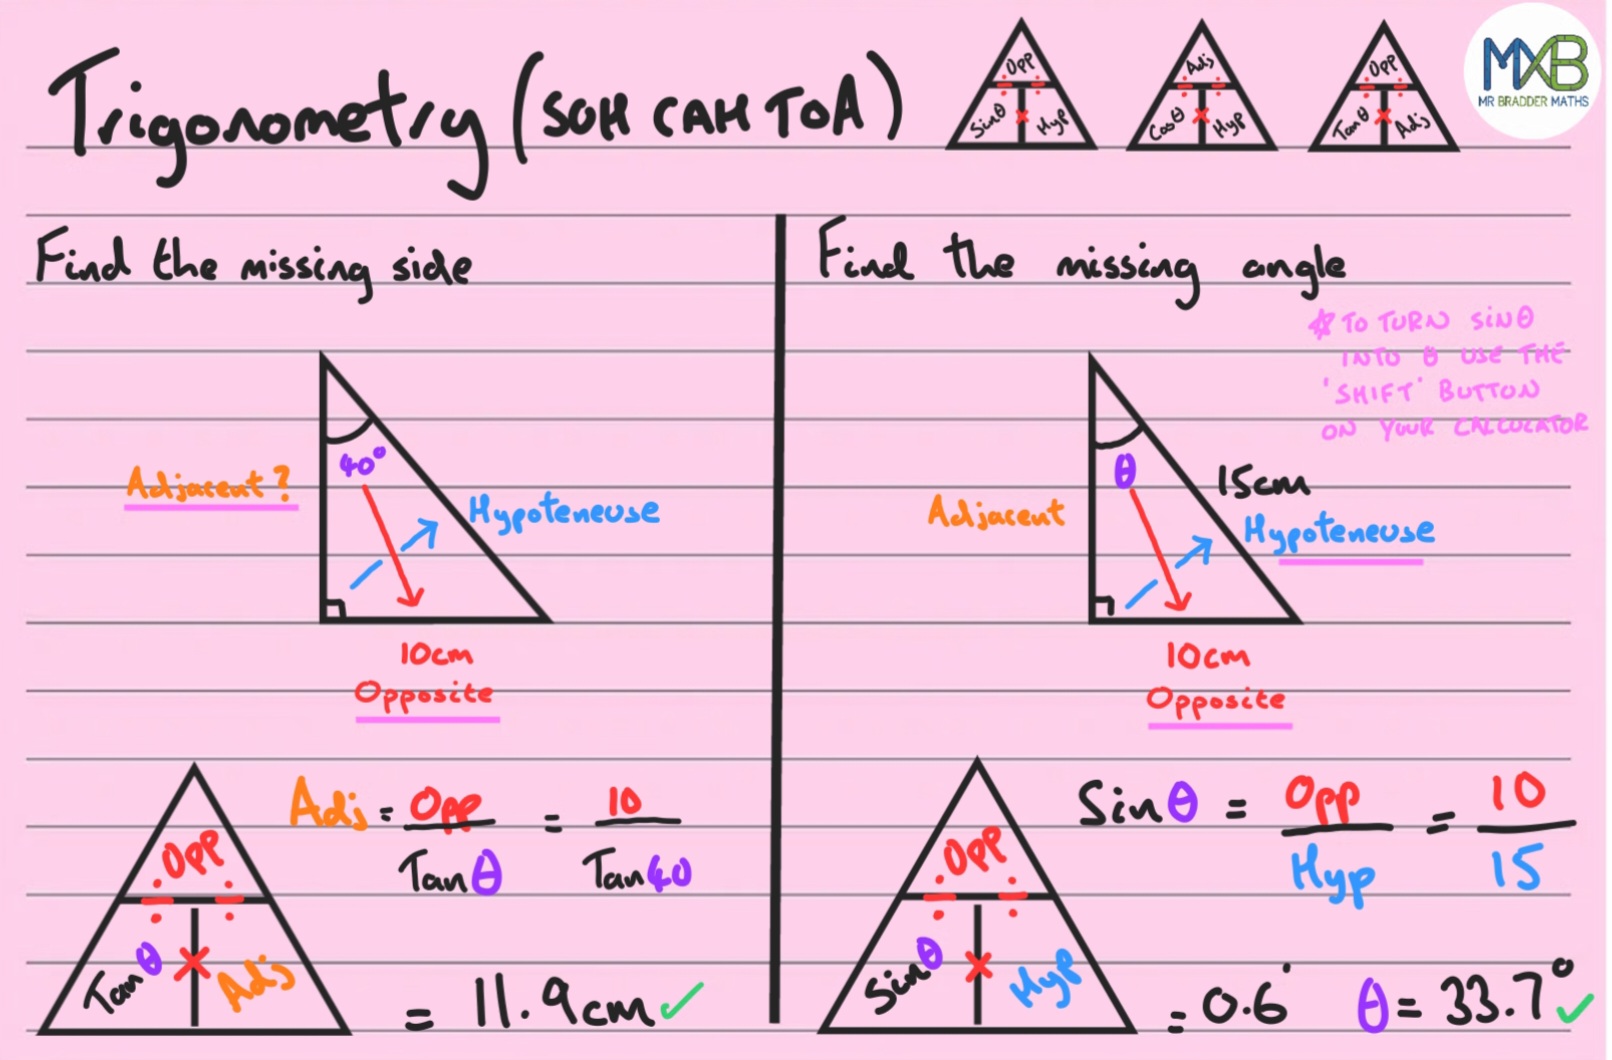 Trigonometry (SOH CAH TOA)
Opp
Sinθ × Hyp
Adj
Cosθ × Hyp
Opp
Tanθ × Adj
MXB
MR BRADDER MATHS
Find the missing side
40°
Adjacent?
Hypoteneuse
10cm
Opposite
Opp
Tanθ × Adj
Adj = Opp/Tanθ = 10/Tan40
= 11.9cm ✓
Find the missing angle
☆ TO TURN SINθ
INTO θ USE THE
'SHIFT' BUTTON
ON YOUR CALCULATOR
θ
15cm
Adjacent
Hypoteneuse
10cm
Opposite
Opp
Sinθ × Hyp
Sinθ = Opp/Hyp = 10/15
= 0.6̇ θ = 33.7° ✓